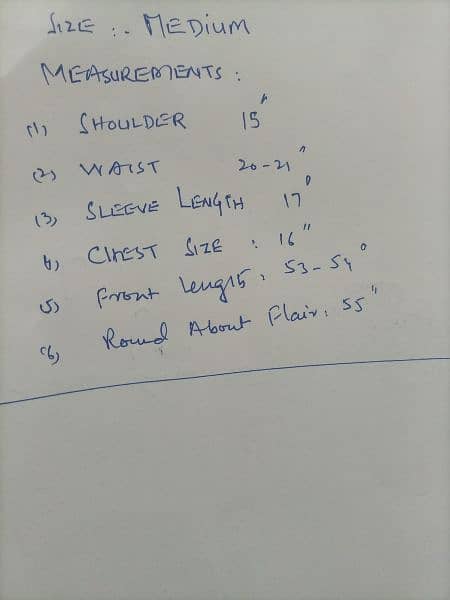 SIZE :- MEDIUM
MEASUREMENTS :
(1) SHOULDER 15"
(2) WAIST 20-21"
(3) SLEEVE LENGTH 17"
4) CHEST SIZE : 16"
5) Front Length : 53-54"
(6) Round About Flair : 55"